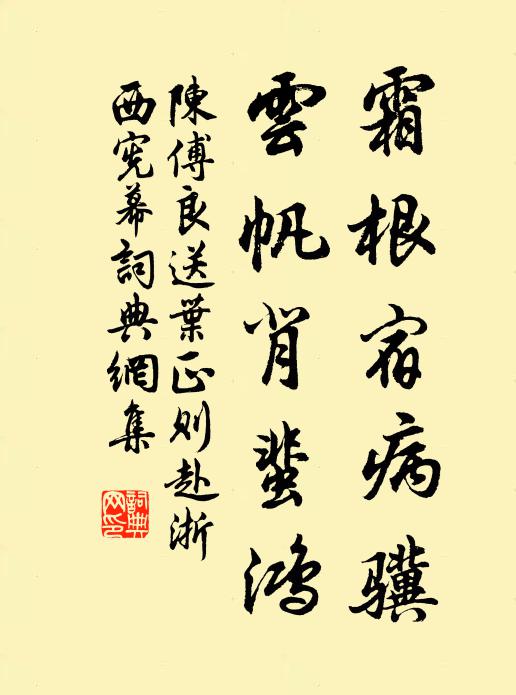 霜根宿病驥
雲帆背蜚鴻
陳傅良送葉正則赴浙
西憲幕詞典網集
詞典
网印